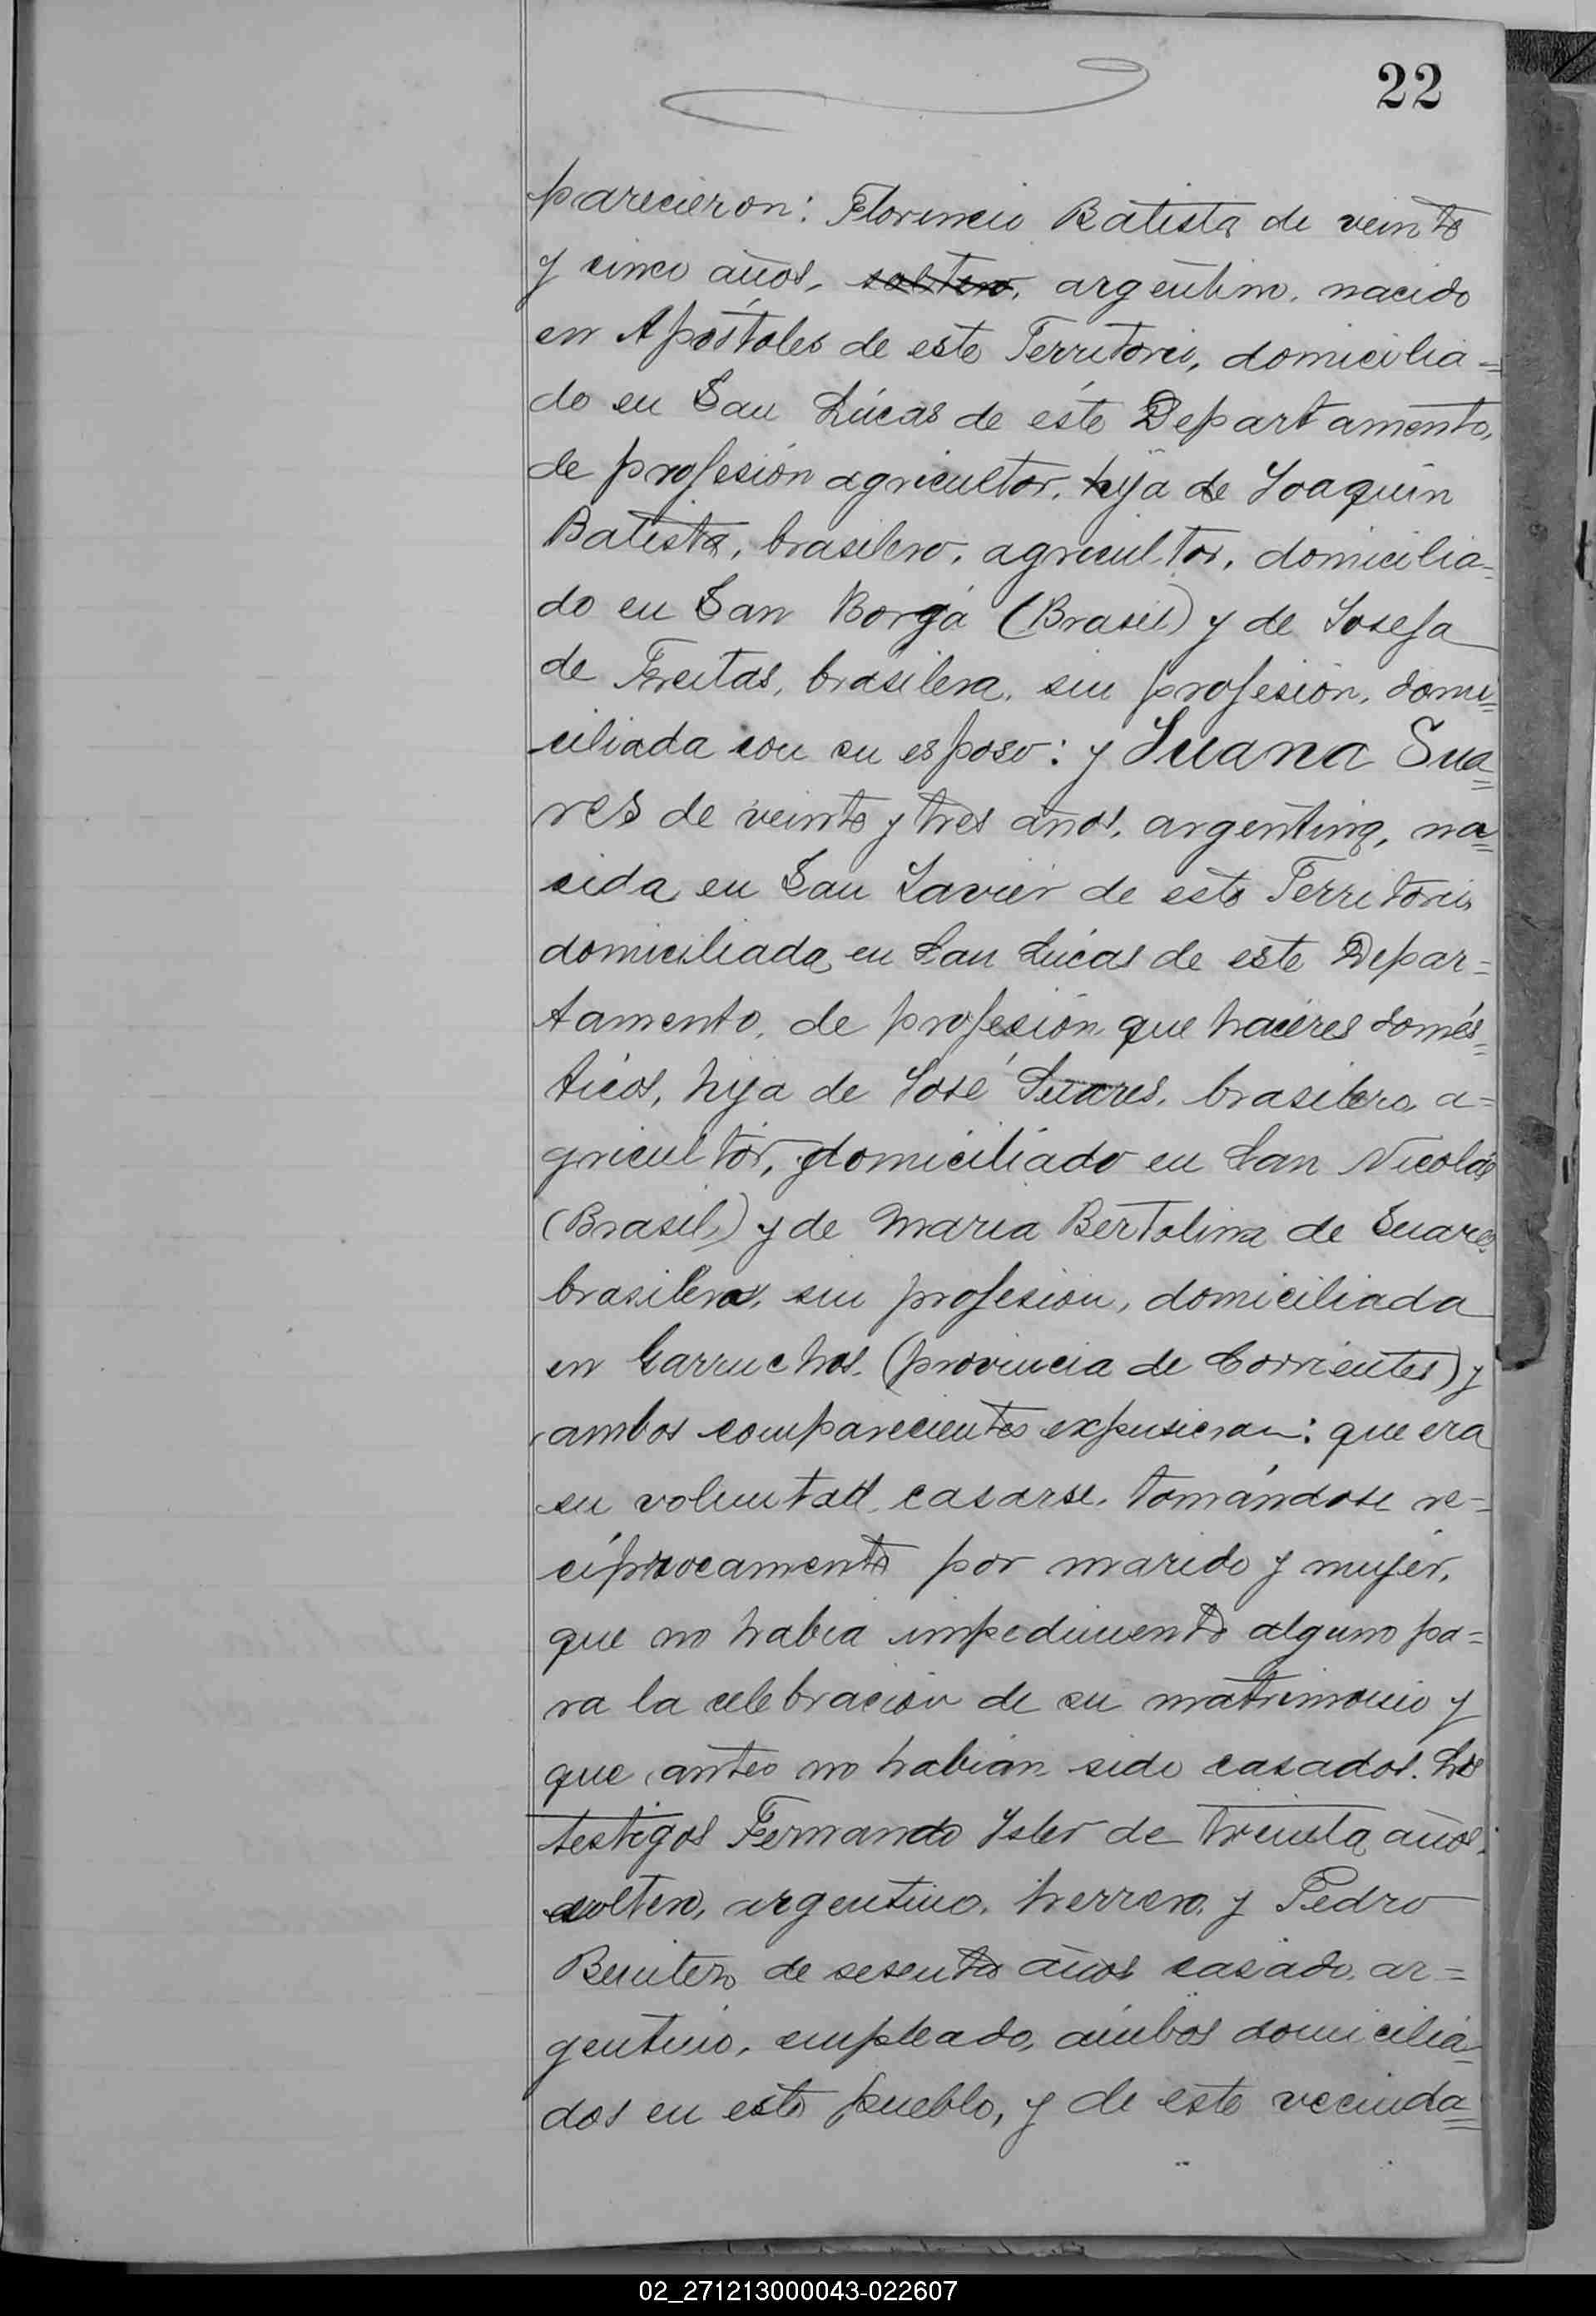 22
parecieron: Florencio Batista de veinte
y cinco años, soltero, argentino, nacido
en Apóstoles de este Territorio, domicilia=
do en San Lúcas de éste Departamento,
de profesión agricultor, hija de Joaquín
Batista, brasilero, agricultor, domicilia=
do en San Borga (Brasil) y de Josefa
de Freitas, brasilera, sin profesión, domi=
ciliada con su esposo: y Juana Sua=
res de veinte y tres años, argentina, na=
sida en San Javier de este Territorio,
domiciliada en San Lúcas de este Depar=
tamento, de profesión que haceres domés=
ticos, hija de José Suares, brasilero, a=
gricultor, domiciliado en San Nicolás
(Brasil) y de Maria Bertolina de Suares
brasilera, sin profesion, domiciliada
en Garruchos. (provincia de Corrientes) y
ambos comparecientes expusieron: que era
su voluntad casarse, tomándose re=
cíprocamente por marido y mujer,
que no habia impedimento alguno pa=
ra la celebración de su matrimonio y
que antes no habian sido casados. Los
testigos Fernando Isler de treinta años,
soltero, argentino, herrero, y Pedro
Benitez de sesenta años casado, ar=
gentino, empleado, ambos domicilia=
dos en este pueblo, y de este vecinda=
02_271213000043-022607